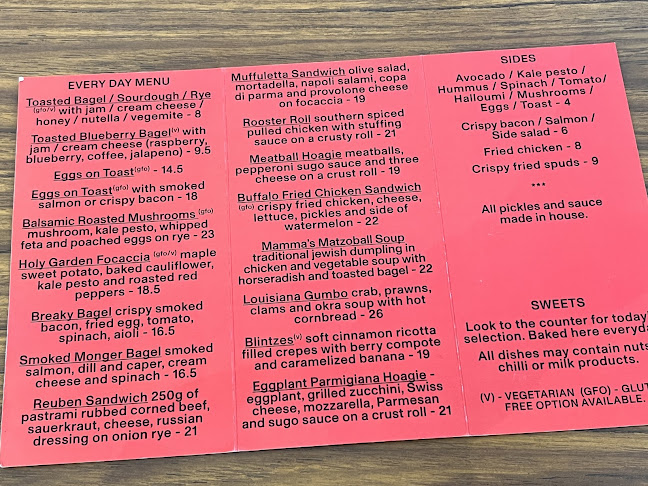 EVERY DAY MENU
Toasted Bagel / Sourdough / Rye
(gfo/v) with jam / cream cheese /
honey / nutella / vegemite - 8
Toasted Blueberry Bagel(v) with
jam / cream cheese (raspberry,
blueberry, coffee, jalapeno) - 9.5
Eggs on Toast(gfo) - 14.5
Eggs on Toast(gfo) with smoked
salmon or crispy bacon - 18
Balsamic Roasted Mushrooms (gfo)
mushroom, kale pesto, whipped
feta and poached eggs on rye - 23
Holy Garden Focaccia (gfo/v) maple
sweet potato, baked cauliflower,
kale pesto and roasted red
peppers - 18.5
Breaky Bagel crispy smoked
bacon, fried egg, tomato,
spinach, aioli - 16.5
Smoked Monger Bagel smoked
salmon, dill and caper, cream
cheese and spinach - 16.5
Reuben Sandwich 250g of
pastrami rubbed corned beef,
sauerkraut, cheese, russian
dressing on onion rye - 21
Muffuletta Sandwich olive salad,
mortadella, napoli salami, copa
di parma and provolone cheese
on focaccia - 19
Rooster Roll southern spiced
pulled chicken with stuffing
sauce on a crusty roll - 21
Meatball Hoagie meatballs,
pepperoni sugo sauce and three
cheese on a crust roll - 19
Buffalo Fried Chicken Sandwich
(gfo) crispy fried chicken, cheese,
lettuce, pickles and side of
watermelon - 22
Mamma's Matzoball Soup
traditional jewish dumpling in
chicken and vegetable soup with
horseradish and toasted bagel - 22
Louisiana Gumbo crab, prawns,
clams and okra soup with hot
cornbread - 26
Blintzes(v) soft cinnamon ricotta
filled crepes with berry compote
and caramelized banana - 19
Eggplant Parmigiana Hoagie -
eggplant, grilled zucchini, Swiss
cheese, mozzarella, Parmesan
and sugo sauce on a crust roll - 21
SIDES
Avocado / Kale pesto /
Hummus / Spinach / Tomato/
Halloumi / Mushrooms /
Eggs / Toast - 4
Crispy bacon / Salmon /
Side salad - 6
Fried chicken - 8
Crispy fried spuds - 9
***
All pickles and sauce
made in house.
SWEETS
Look to the counter for today'
selection. Baked here everyda
All dishes may contain nuts
chilli or milk products.
(V) - VEGETARIAN (GFO) - GLUT
FREE OPTION AVAILABLE.